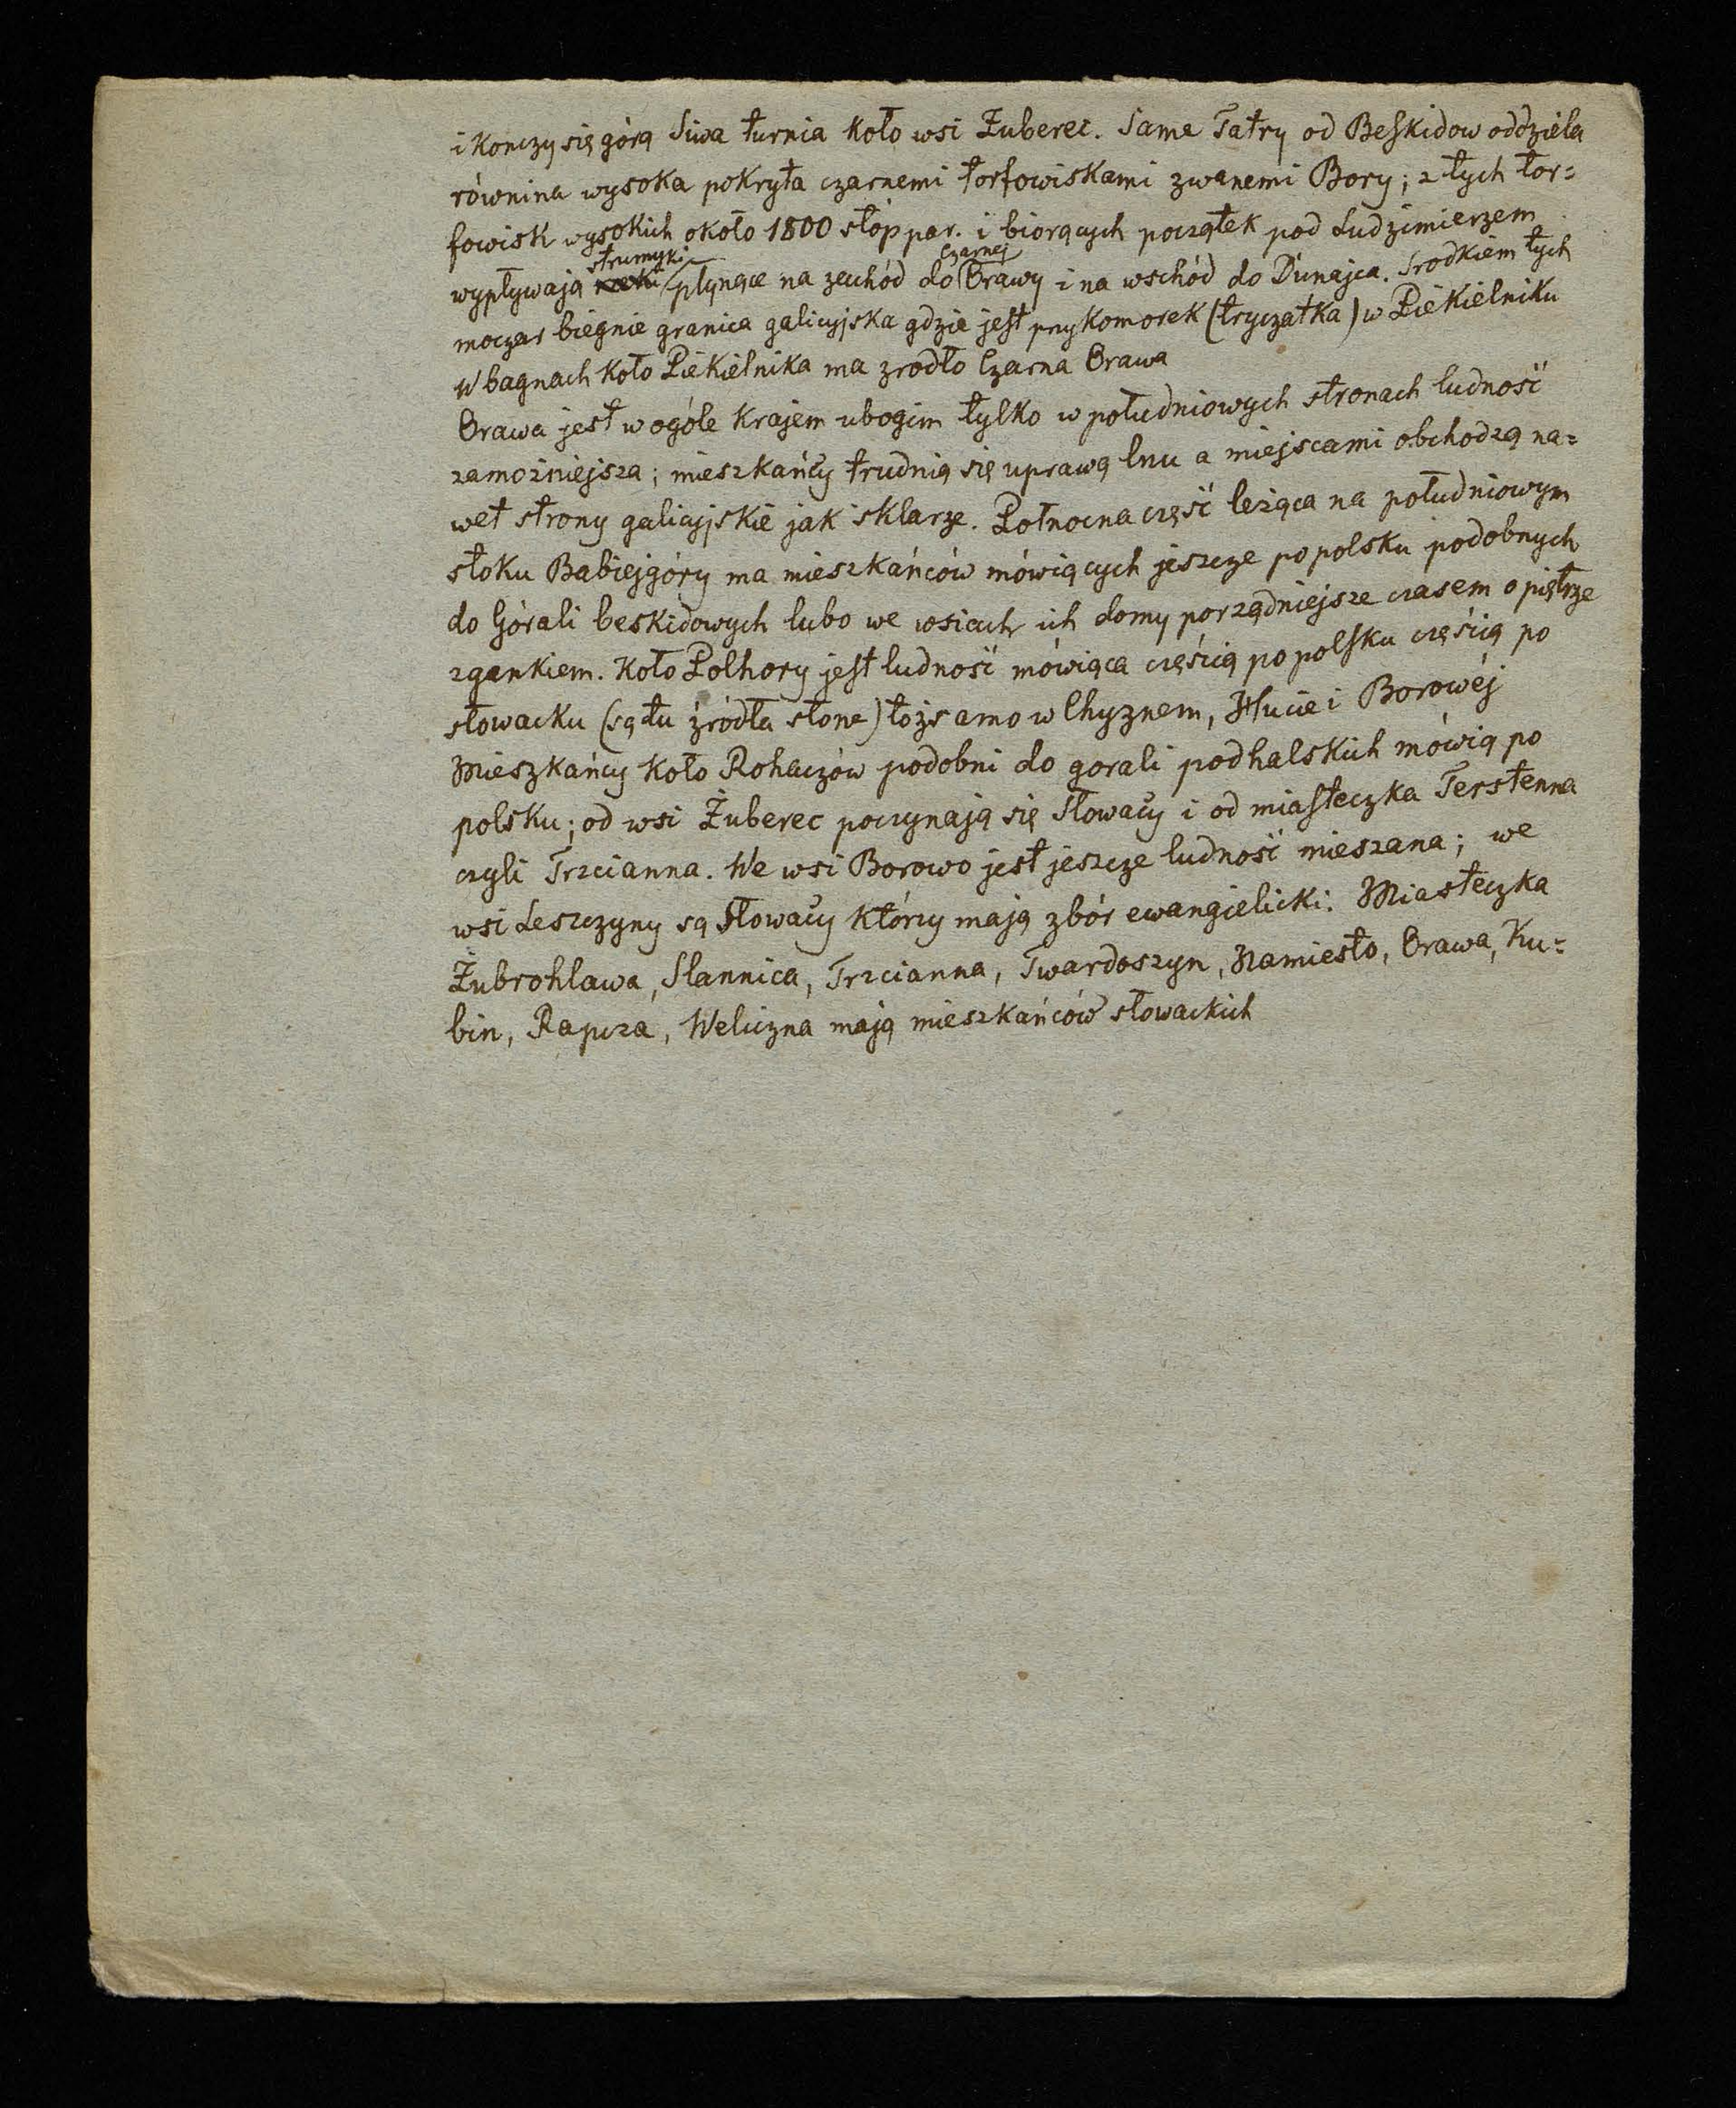 i konczy się górą Siwa turnia koło wsi Zuberec. Same Tatry od Beskidow oddziela
równina wysoka pokryta czarnemi torfowiskami zwanemi Bory; z tych tor=
fowisk wysokich około 1800 stóp par. i biorących początek pod Ludzimierzem
wypływają strumyki płynące na zachód do Czarnej Orawy i na wschód do Dunajca. Srodkiem tych
moczar biegnie granica galicyjska gdzie jest przykomorek (tryczatka) w Piekielniku
W bagnach koło Piekielnika ma zrodło Czarna Orawa
Orawa jest w ogóle krajem ubogim tylko w południowych stronach ludność
zamożniejsza; mieszkańcy trudnią się uprawą lnu a miejscami obchodzą na=
wet strony galicyjskie jak sklarze. Połnocna część leżąca na południowym
stoku Babiejgóry ma mieszkańców mówiących jeszcze po polsku podobnych
do Górali beskidowych lubo we wsiach ich domy porządniejsze czasem o piętrze
z gankiem. Koło Polhory jest ludność mówiąca częścią po polsku częścią po
słowacku (są tu źródła słone) tożsamo w Chyznem, Hucie i Borowéj
Mieszkańcy koło Rohaczów podobni do gorali podhalskich mówią po
polsku; od wsi Żuberec poczynają się Słowacy i od miasteczka Terstenna
czyli Trzcianna. We wsi Borowo jest jeszcze ludność mieszana; we
wsi Leszczyny są Słowacy którzy mają zbór ewangielicki. Miasteczka
Żubrohlawa, Slannica, Trzcianna, Twardoszyn, Namiesto, Orawa, Ku=
bin, Rapcza, Weliczna mają mieszkańców słowackich